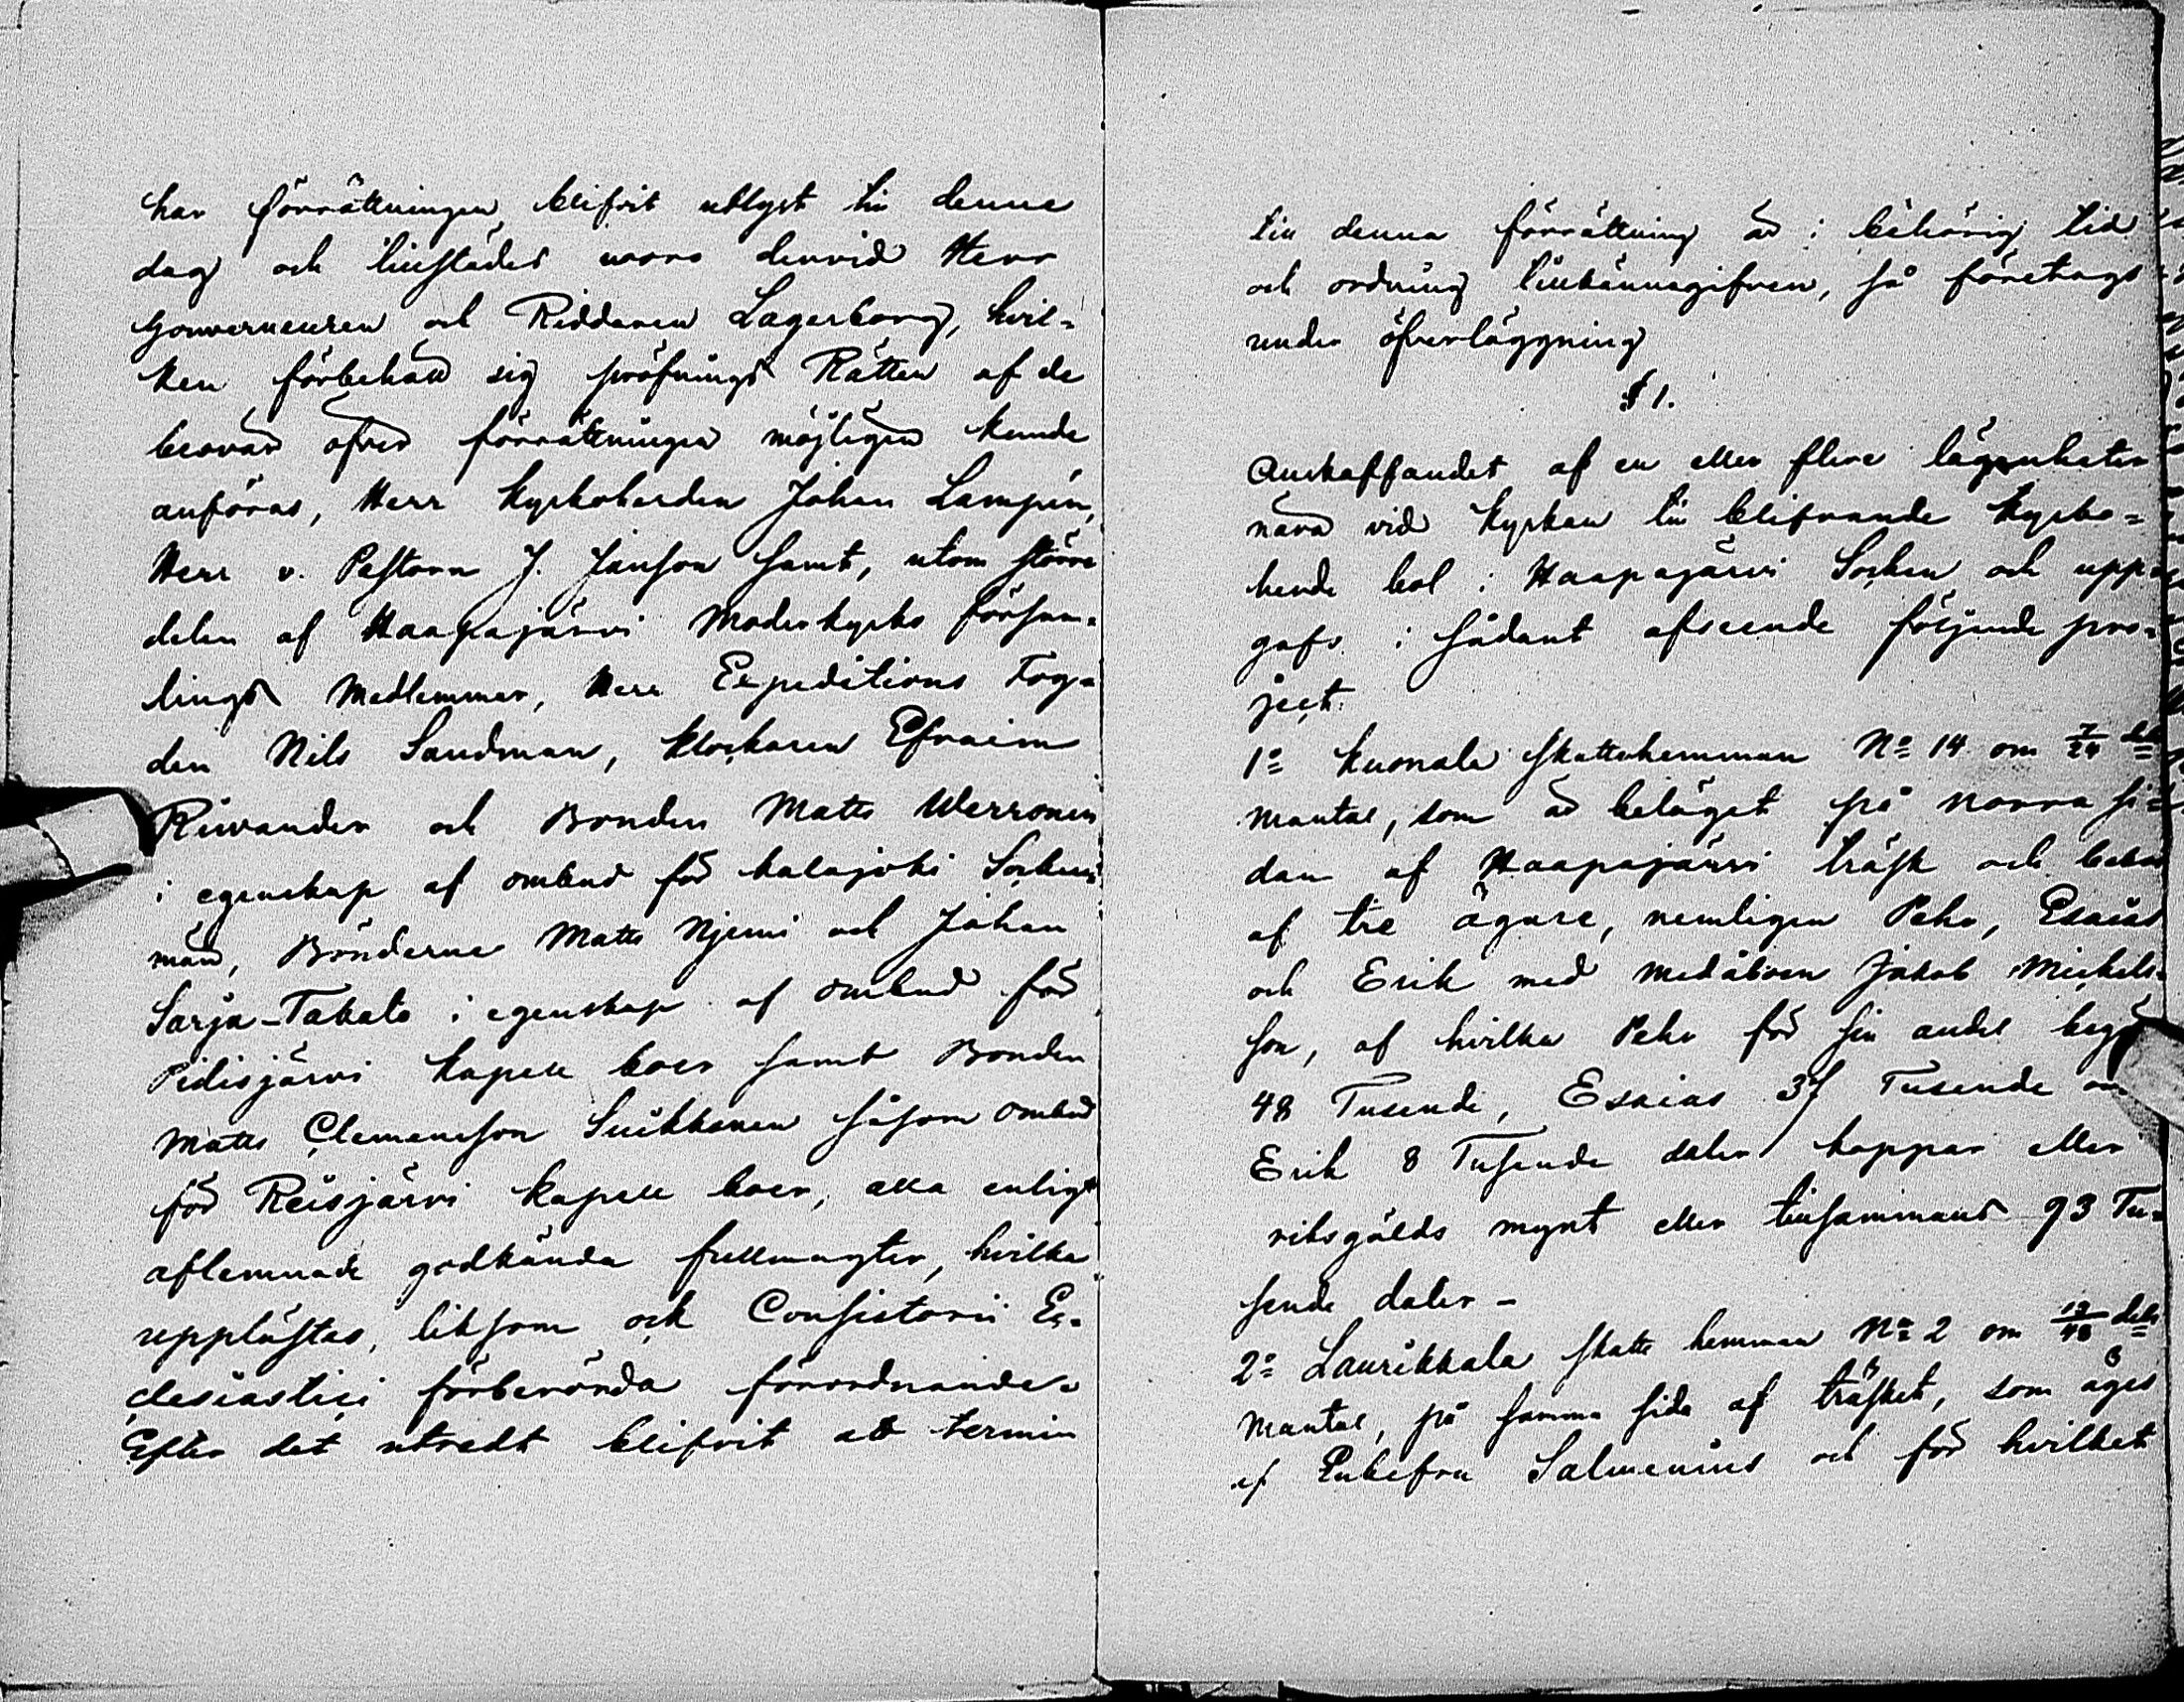 har förrättningen blifvit utlyst till denne
dag och tillstädes woro dervid Herr
Gouverneuren och Riddaren Lagerborg, hvil-
ken förbehåll sig pröfnings Rätten af de
besvär öfver förrättningen möjligen kunde
anföras, Herr Kyrkoherden Johan Lampén,
Herr v. Pastorn J. Janson samt, utom större
delen af Haapajärvi Moderkyrko försam-
lings Medlemmar, Herr Expeditions Fog-
den Nils Sandman, Klockaren Efraim
Riuvander och Bonden Matts Werronen
i egenskap af ombud för Kalajoki Socken
män, Bönderne Matts Njemi och Johan
Sarja-Takalo i egenskap af ombud för
Pidisjärvi Kapell boer samt Bonden
Matts Clemensson Suikkanen såsom ombud
för Reisjärvi Kapell boer, alla enligt
aflemnade godkända fullmagter, hvilka
upplästes, liksom ock Consistorii Ec-
clesiastici förberörda förordnande.
Efter det utredt blifvit att termin
till denna förrättning är i behörig tid
och ordning tillkännagifven, så företrags
under öfverläggning
§ 1.
Anskaffandet af en eller flere lägenheter
nära vid Kyrkan till blifvande Kyrko-
herde bol i Haapajärvi Socken och upp-
gafs i sådant afseende följande pro-
ject.
1o Kuonala Skattehemman No 14 om 7/24 dels
mantal, som är beläget på norra si-
dan af Haapajärvi träsk och bebos
af tre ägare, nemligen Pehr, Esaias
och Erik med medåboen Jakob Michels-
son, af hvilka Pehr för sin andel begär
48 Tusende, Esaias 37 Tusende och
Erik 8 Tusende daler koppar eller
riksgälds mynt eller tillsammans 93 Tu-
sende daler -
2o Laurikkala skatte hemman No 2 om 12/48 dels
Mantal, på samma sida af träsket, som äges
af Enkefru Salmenius och för hvilket